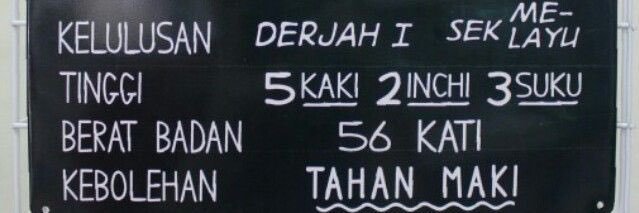 KELULUSAN DERJAH I SEK ME-LAYU
TINGGI 5 KAKI 2 INCHI 3 SUKU
BERAT BADAN 56 KATI
KEBOLEHAN TAHAN MAKI